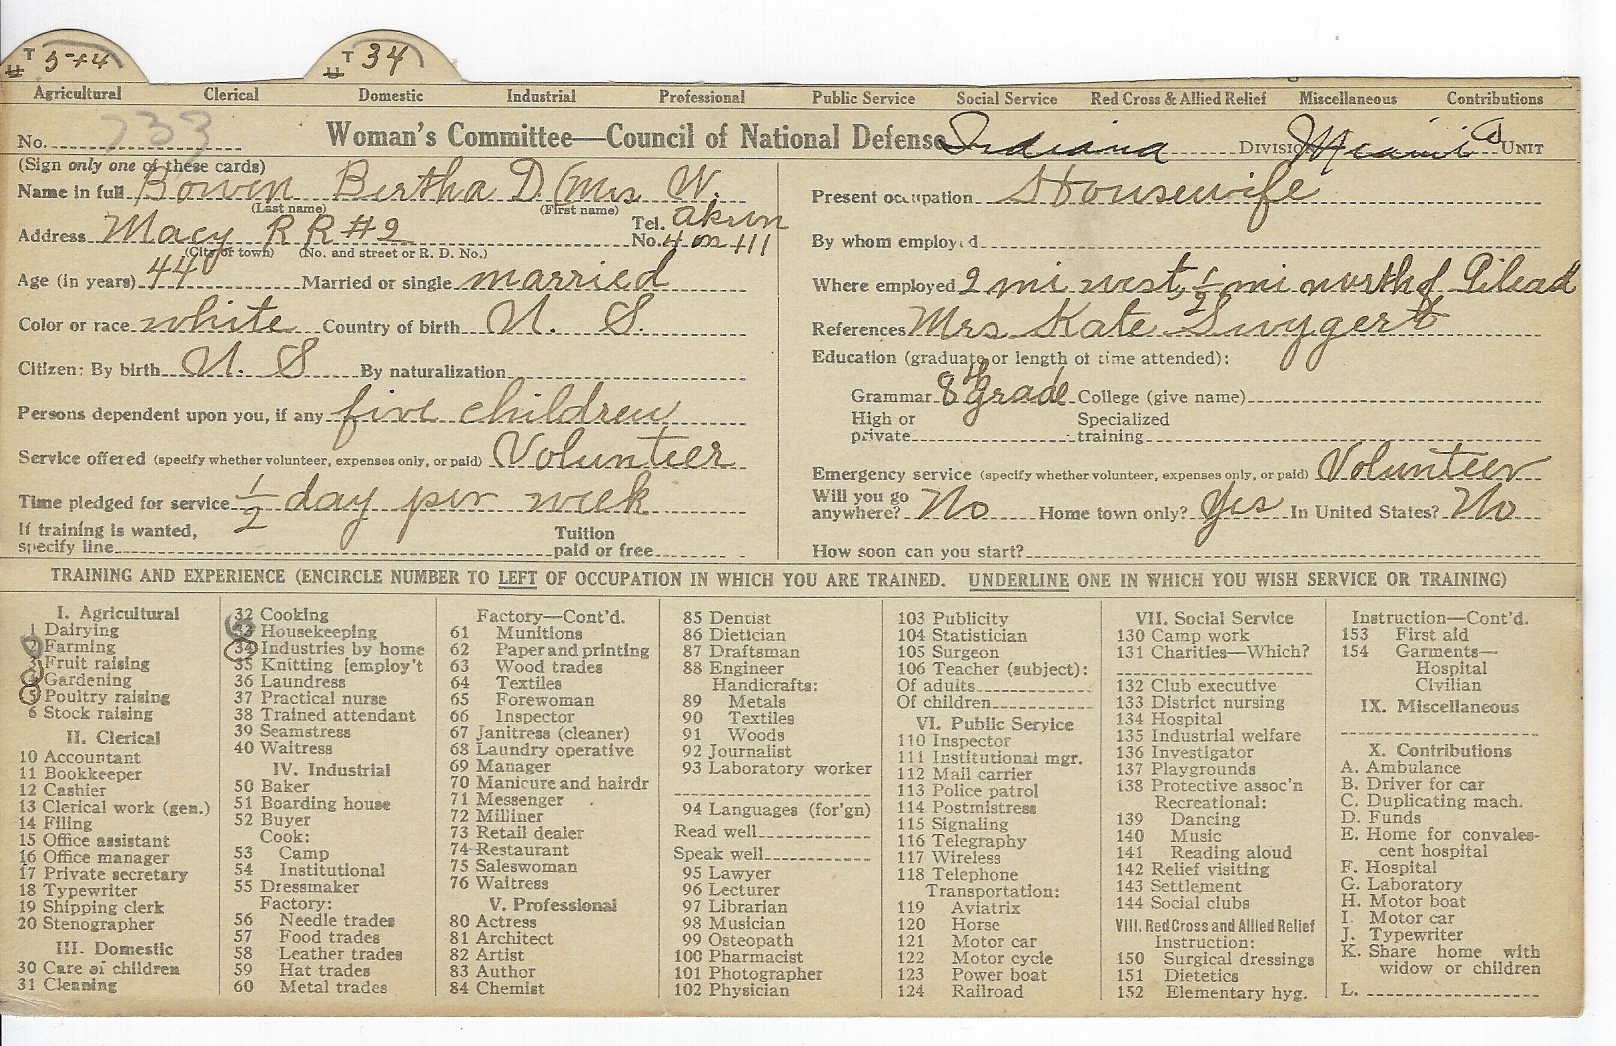 T 5+4 T 34
Agricultural Clerical Domestic Industrial Professional Public Service Social Service Red Cross & Allied Relief Miscellaneous Contributions
No. 733 Woman's Committee—Council of National Defense Indiana DIVISION Miami Co UNIT
(Sign only one of these cards)
Name in full Bowen Bertha D (Mrs W.
(Last name) (First name)
Address Macy R R #2 Tel. No. akron 4 on 111
(City or town) (No. and street or R. D. No.)
Age (in years) 44 Married or single married
Color or race white Country of birth U. S.
Citizen: By birth U. S By naturalization
Persons dependent upon you, if any five children
Service offered (specify whether volunteer, expenses only, or paid) Volunteer
Time pledged for service 1/2 day per week
If training is wanted, Tuition
specify line paid or free
Present occupation Housewife
By whom employed
Where employed 2 mi west, 1/2 mi north of Pilead
References Mrs Kate Swygert
Education (graduate or length of time attended):
Grammar 8th grade College (give name)
High or Specialized
private training
Emergency service (specify whether volunteer, expenses only, or paid) Volunteer
Will you go
anywhere? No Home town only? Yes In United States? No
How soon can you start?
TRAINING AND EXPERIENCE (ENCIRCLE NUMBER TO LEFT OF OCCUPATION IN WHICH YOU ARE TRAINED. UNDERLINE ONE IN WHICH YOU WISH SERVICE OR TRAINING)
I. Agricultural
1 Dairying
2 Farming
3 Fruit raising
4 Gardening
5 Poultry raising
6 Stock raising
II. Clerical
10 Accountant
11 Bookkeeper
12 Cashier
13 Clerical work (gen.)
14 Filing
15 Office assistant
16 Office manager
17 Private secretary
18 Typewriter
19 Shipping clerk
20 Stenographer
III. Domestic
30 Care of children
31 Cleaning
32 Cooking
33 Housekeeping
34 Industries by home
35 Knitting [employ't
36 Laundress
37 Practical nurse
38 Trained attendant
39 Seamstress
40 Waitress
IV. Industrial
50 Baker
51 Boarding house
52 Buyer
Cook:
53 Camp
54 Institutional
55 Dressmaker
Factory:
56 Needle trades
57 Food trades
58 Leather trades
59 Hat trades
60 Metal trades
Factory—Cont'd.
61 Munitions
62 Paper and printing
63 Wood trades
64 Textiles
65 Forewoman
66 Inspector
67 Janitress (cleaner)
68 Laundry operative
69 Manager
70 Manicure and hairdr
71 Messenger
72 Milliner
73 Retail dealer
74 Restaurant
75 Saleswoman
76 Waitress
V. Professional
80 Actress
81 Architect
82 Artist
83 Author
84 Chemist
85 Dentist
86 Dietician
87 Draftsman
88 Engineer
Handicrafts:
89 Metals
90 Textiles
91 Woods
92 Journalist
93 Laboratory worker
94 Languages (for'gn)
Read well
Speak well
95 Lawyer
96 Lecturer
97 Librarian
98 Musician
99 Osteopath
100 Pharmacist
101 Photographer
102 Physician
103 Publicity
104 Statistician
105 Surgeon
106 Teacher (subject):
Of adults
Of children
VI. Public Service
110 Inspector
111 Institutional mgr.
112 Mail carrier
113 Police patrol
114 Postmistress
115 Signaling
116 Telegraphy
117 Wireless
118 Telephone
Transportation:
119 Aviatrix
120 Horse
121 Motor car
122 Motor cycle
123 Power boat
124 Railroad
VII. Social Service
130 Camp work
131 Charities—Which?
132 Club executive
133 District nursing
134 Hospital
135 Industrial welfare
136 Investigator
137 Playgrounds
138 Protective assoc'n
Recreational:
139 Dancing
140 Music
141 Reading aloud
142 Relief visiting
143 Settlement
144 Social clubs
VIII. Red Cross and Allied Relief
Instruction:
150 Surgical dressings
151 Dietetics
152 Elementary hyg.
Instruction—Cont'd.
153 First aid
154 Garments—
Hospital
Civilian
IX. Miscellaneous
X. Contributions
A. Ambulance
B. Driver for car
C. Duplicating mach.
D. Funds
E. Home for convales-
cent hospital
F. Hospital
G. Laboratory
H. Motor boat
I. Motor car
J. Typewriter
K. Share home with
widow or children
L.